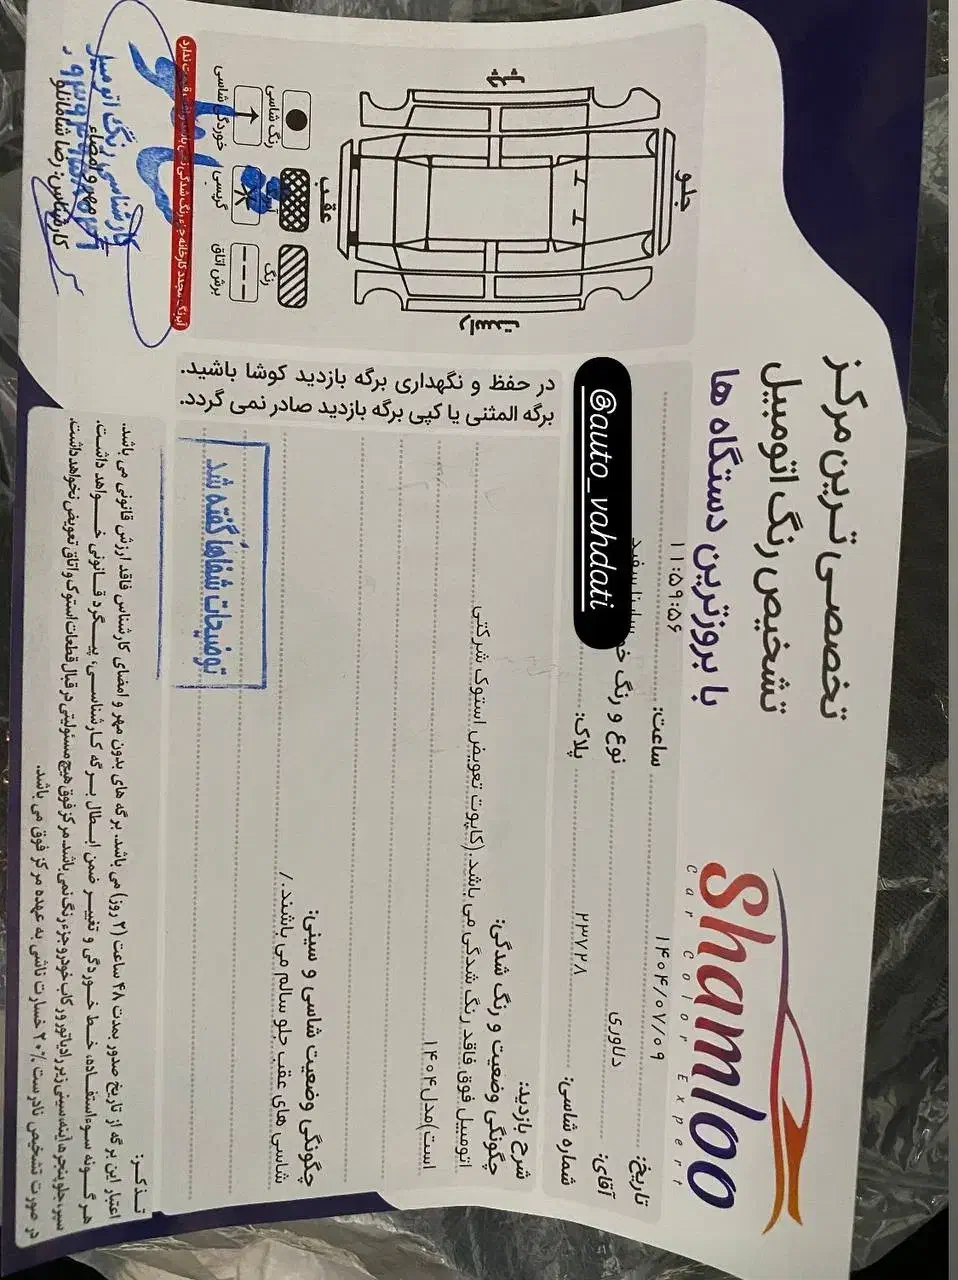 تخصصی ترین مرکز
تشخیص رنگ اتومبیل
با بروزترین دستگاه ها
Shamloo
Car Color Expert
تاریخ: ۱۴۰۴/۰۷/۰۹
ساعت: ۱۱:۵۹:۵۶
آقای: دلاوری
نوع و رنگ
شماره شاسی: ۲۳۷۲۸
پلاک:
@auto_vahdati
شرح بازدید:
چگونگی وضعیت و رنگ شدگی:
اتومبیل فوق فاقد رنگ شدگی می باشد.(کاپوت تعویض استوک شرکتی
است)مدل۱۴۰۴
چگونگی وضعیت شاسی و سینی:
شاسی های عقب جلو سالم می باشند./
توضیحات شفاهاً گفته شد
در حفظ و نگهداری برگه بازدید کوشا باشید.
برگه المثنی یا کپی برگه بازدید صادر نمی گردد.
جلو
عقب
راست
رنگ شاسی
رنگ
خوردگی شاسی
گریسی
برش اتاق
آبرنگ مجدد کارخانه جزء رنگ شدگی نمی باشد و افت قیمت ندارد
کارشناسی رنگ اتومبیل
مهر و امضاء
کارشناس: رضا شاماللو
تذکر:
اعتبار این برگه از تاریخ صدور بمدت ۴۸ ساعت (۲ روز) می باشد. برگه های بدون مهر و امضای کارشناس فاقد ارزش قانونی می باشد.
هرگونه سوءاستفاده، خط خوردگی و تغییر ضمن ابطال برگه کارشناسی، پیگرد قانونی خواهد داشت.
سپر،جلوپنجره،آینه،سینی زیر رادیاتور و رکاب خودرو جزء رنگ نمی باشد. مرکز فوق هیچ مسئولیتی در قبال قطعات استوک و اتاق تعویض نخواهد داشت.
در صورت تشخیص نادرست ۲۰٪ خسارت ناشی به عهده مرکز فوق می باشد.